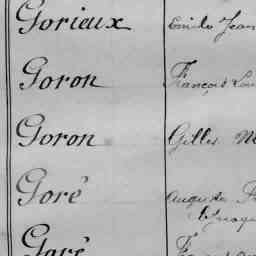 Gorieux Emile Jean
Goron François Lou
Goron Gilles M
Goré Auguste
Goré